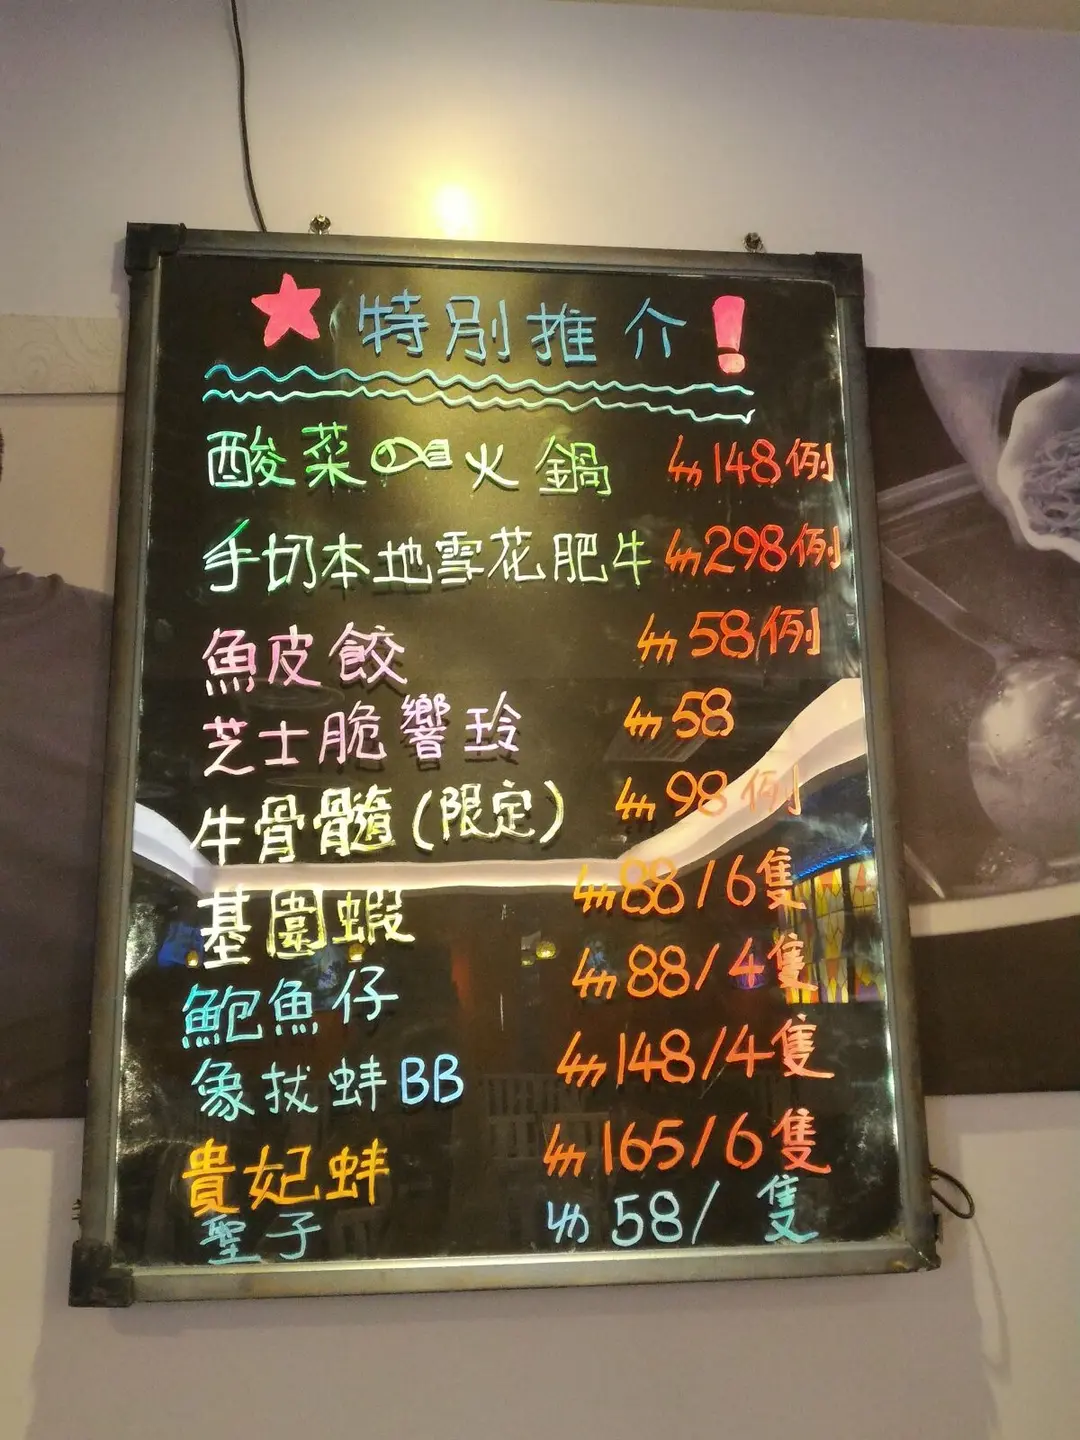 特別推介!
酸菜火鍋 $148例
手切本地雪花肥牛 $298例
魚皮餃 $58例
芝士脆響玲 $58
牛骨髓(限定) $98例
基圍蝦 $88/6隻
鮑魚仔 $88/4隻
象拔蚌BB $148/4隻
貴妃蚌 $165/6隻
聖子 $58/隻